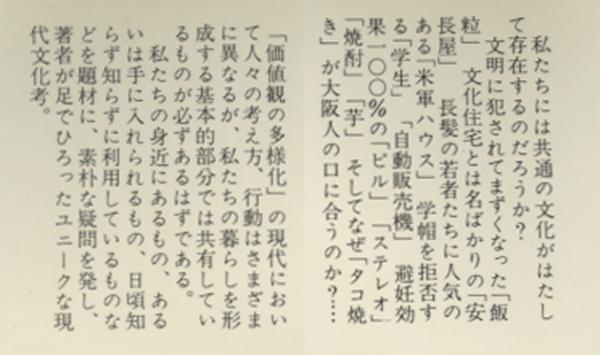 私たちには共通の文化がはたし
て存在するのだろうか？
文明に犯されてまずくなった「飯
粒」　文化住宅とは名ばかりの「安
長屋」　長髪の若者たちに人気の
ある「米軍ハウス」　学帽を拒否す
る「学生」　「自動販売機」　避妊効
果一〇〇％の「ピル」　「ステレオ」
「焼酎」「芋」　そしてなぜ「タコ焼
き」が大阪人の口に合うのか？……
「価値観の多様化」の現代におい
て人々の考え方、行動はさまざま
に異なるが、私たちの暮らしを形
成する基本的部分では共有してい
るものが必ずあるはずである。
私たちの身近にあるもの、ある
いは手に入れられるもの、日頃知
らず知らずに利用しているものな
どを題材に、素朴な疑問を発し、
著者が足でひろったユニークな現
代文化考。